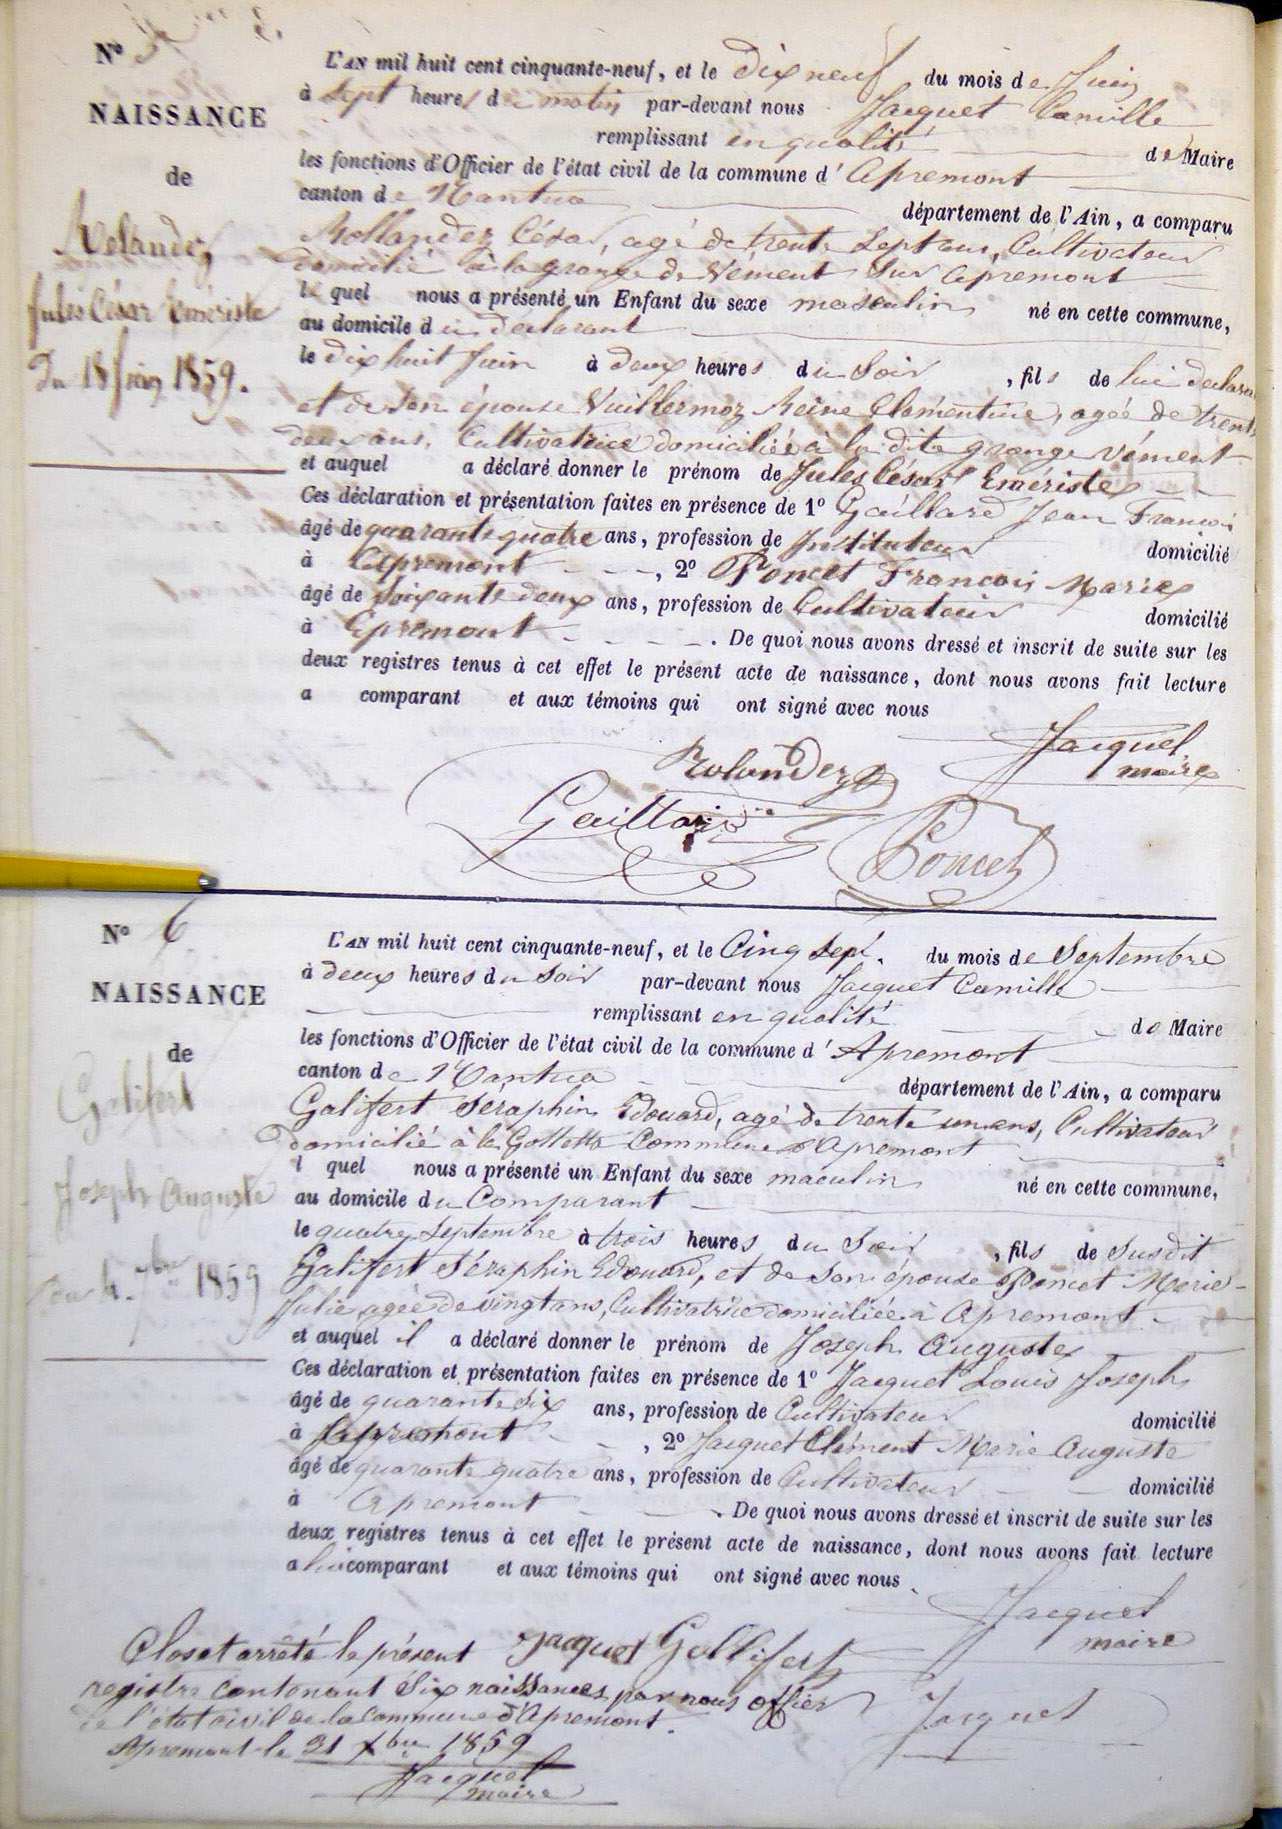 N° 5
NAISSANCE
de
Rolandez
Jules César Emériste
Du 18 Juin 1859.
L'AN mil huit cent cinquante-neuf, et le dix neuf du mois de Juin
à sept heures du matin par-devant nous Jacquet Camille
remplissant en qualité de Maire
les fonctions d'Officier de l'état civil de la commune d'Apremont
canton de Nantua département de l'Ain, a comparu
Rollandez César, agé de trente sept ans, Cultivateur
domicilié à la grange de Vément sur apremont
le quel nous a présenté un Enfant du sexe masculin né en cette commune,
au domicile du déclarant
le dix huit Juin à deux heures du soir, fils de lui déclarant
et de son épouse Vuillermoz Reine Clémentine, agée de trente
deux ans, Cultivatrice domiciliée à la dite grange Vément
et auquel a déclaré donner le prénom de Jules César Emériste
Ces déclaration et présentation faites en présence de 1° Gaillard Jean François
âgé de quarante quatre ans, profession de Instituteur domicilié
à Apremont, 2° Poncet François Marie
âgé de soixante deux ans, profession de Cultivateur domicilié
à Apremont. De quoi nous avons dressé et inscrit de suite sur les
deux registres tenus à cet effet le présent acte de naissance, dont nous avons fait lecture
a comparant et aux témoins qui ont signé avec nous
Jacquet
maire
Rolandez
Gaillard
Poncet
N° 6
NAISSANCE
de
Galifert
Joseph Auguste
du 4 7bre 1859
L'AN mil huit cent cinquante-neuf, et le Cinq sept. du mois de Septembre
à deux heures du soir par-devant nous Jacquet Camille
remplissant en qualité de Maire
les fonctions d'Officier de l'état civil de la commune d'Apremont
canton de Nantua département de l'Ain, a comparu
Galifert Séraphin Edouard, agé de trente un ans, Cultivateur
domicilié à la Gottette Commune d'Apremont
l quel nous a présenté un Enfant du sexe maculin né en cette commune,
au domicile du Comparant
le quatre Septembre à trois heures du Soir, fils de susdit
Galifert Séraphin Edouard, et de son épouse Poncet Marie-
Julie agée de vingt ans, Cultivatrice domiciliée à Apremont
et auquel il a déclaré donner le prénom de Joseph Auguste
Ces déclaration et présentation faites en présence de 1° Jacquet Louis Joseph
âgé de quarante six ans, profession de Cultivateur domicilié
à Apremont, 2° Jacquet Clément Marie Auguste
âgé de quarante quatre ans, profession de Cultivateur domicilié
à Apremont. De quoi nous avons dressé et inscrit de suite sur les
deux registres tenus à cet effet le présent acte de naissance, dont nous avons fait lecture
a lui comparant et aux témoins qui ont signé avec nous.
Jacquet
maire
Jacquet Gallifert
Jacquet
Clos et arrêté le présent
registre contenant Six naissances par nous offier
de l'état civil de la Commune d'Apremont.
Apremont le 31 Xbre 1859
Jacquet
maire